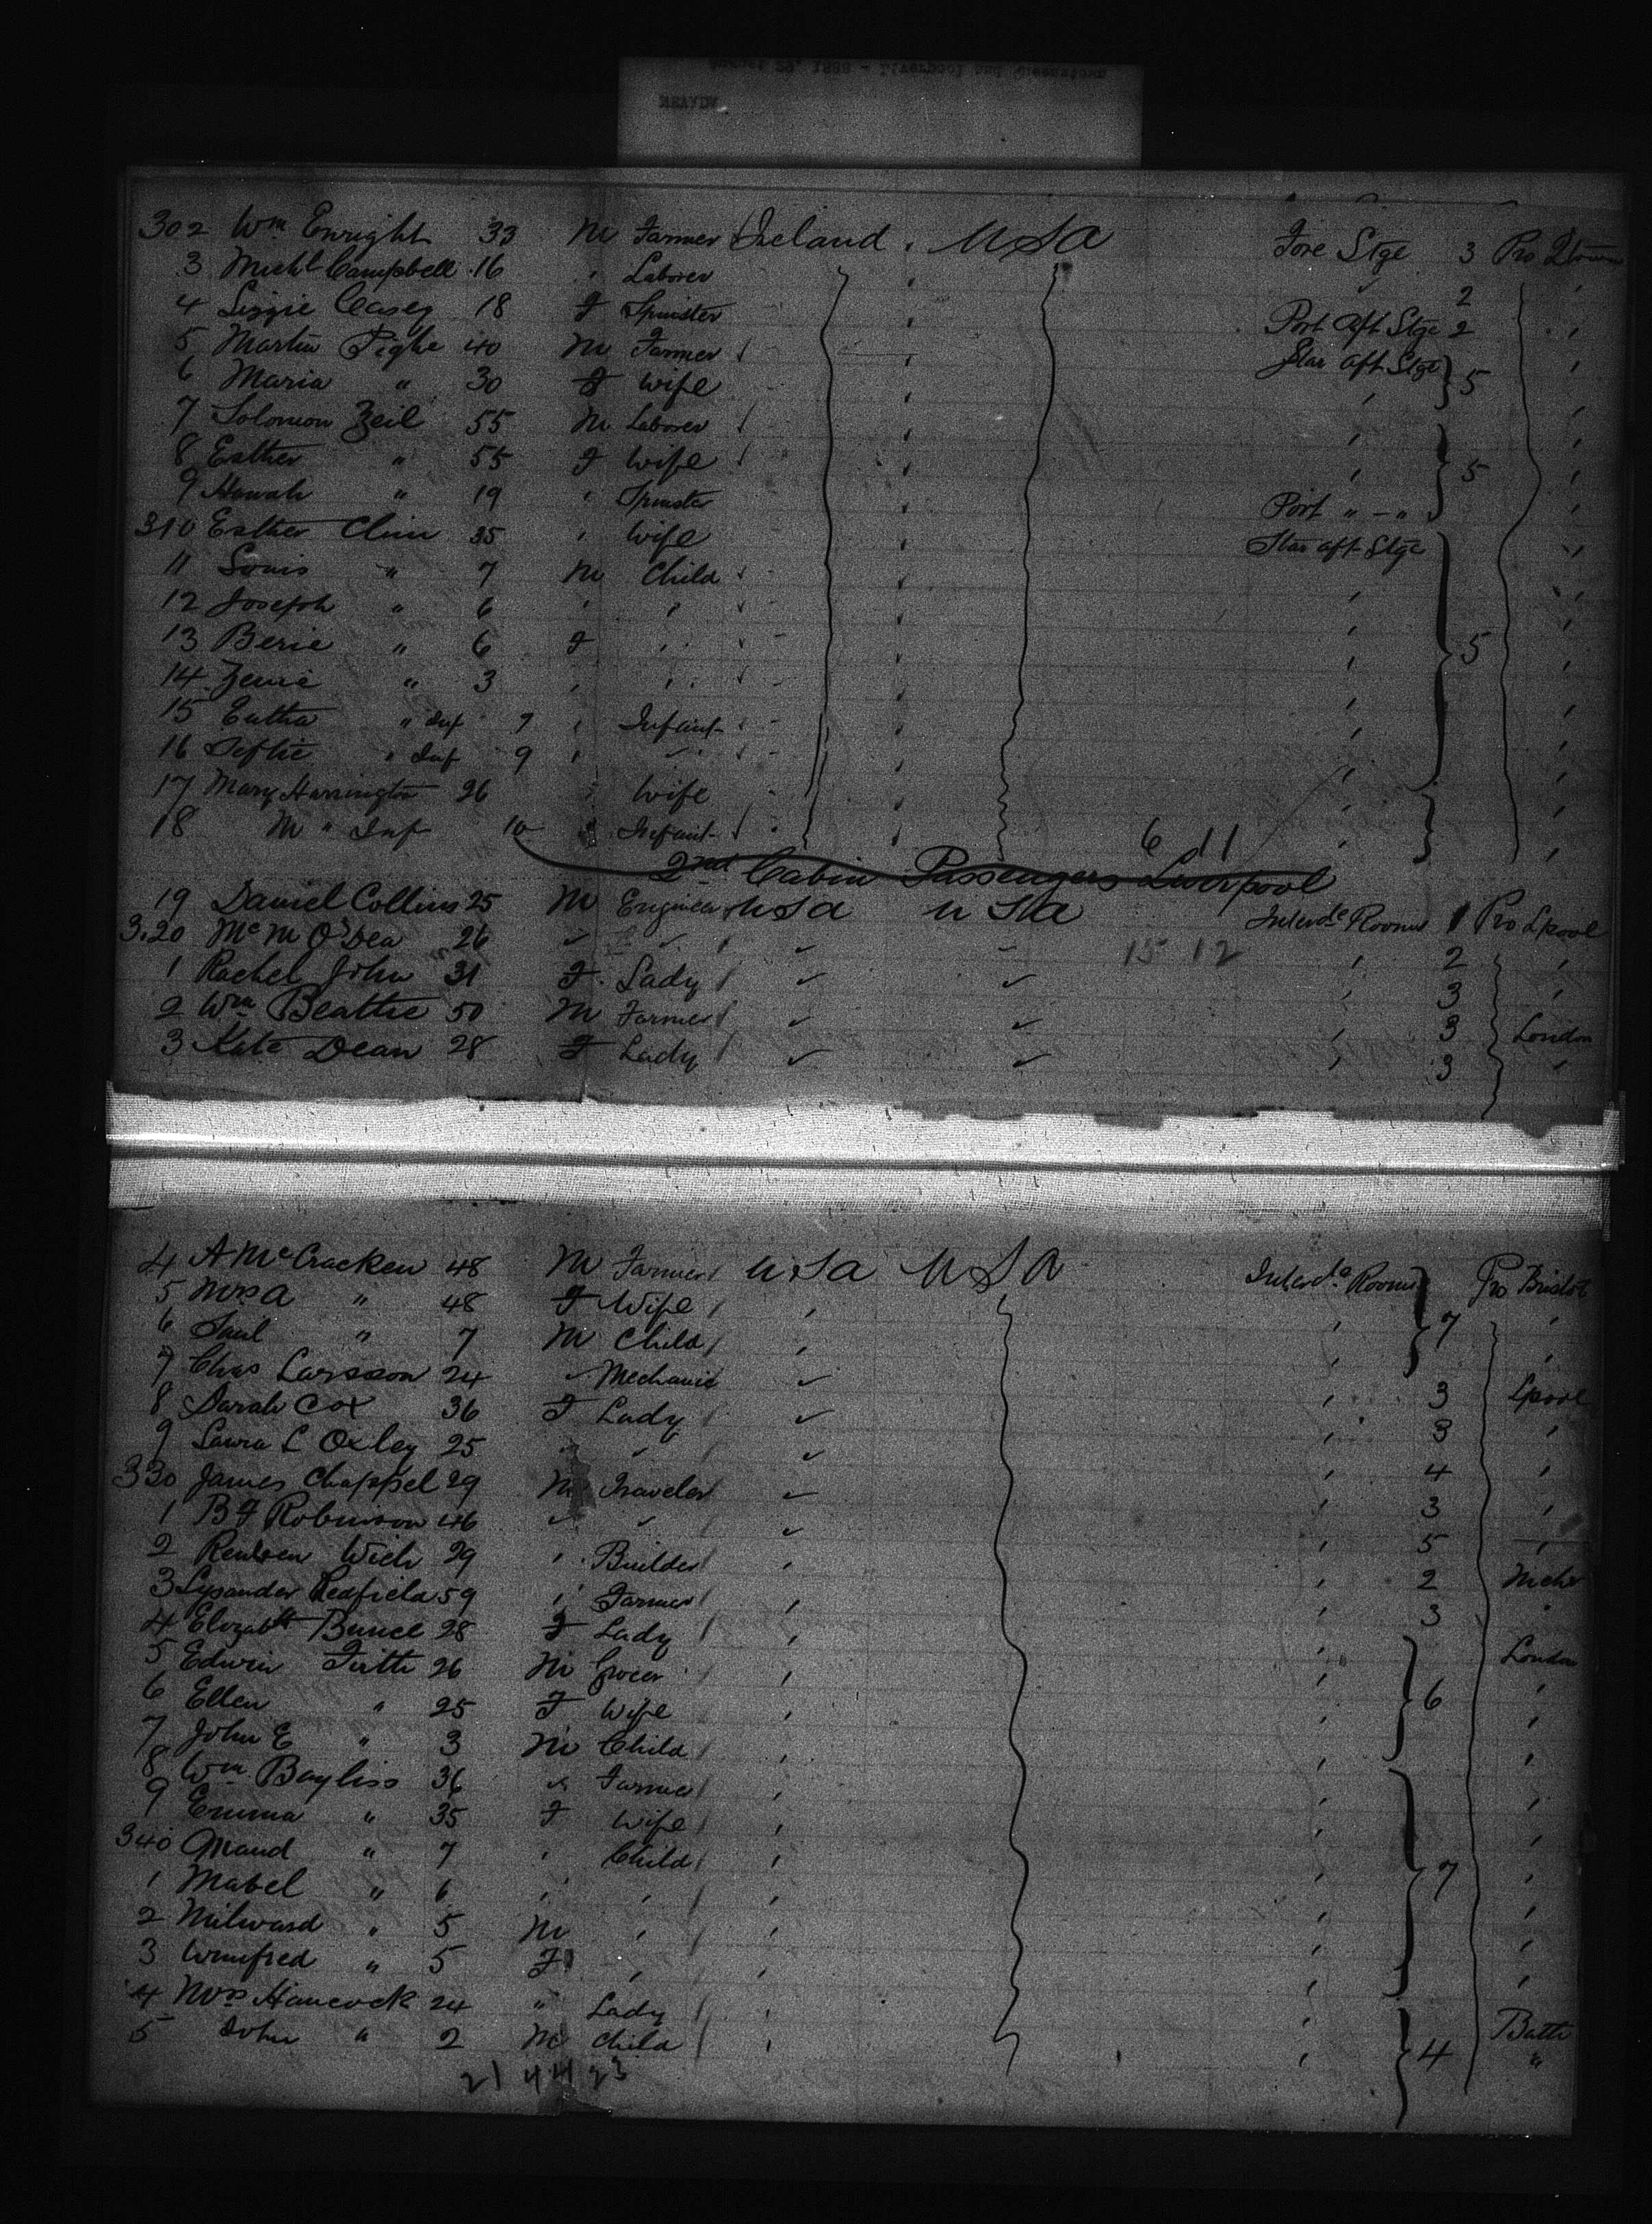 302 Wm Enright 33 M Farmer Ireland , USA Fore Stge 3 Pro Qtown
3 Michl Campbell 16 , Laborer , 2 ,
4 Lizzie Casey 18 F Spinster , Port Aft Stge 2 ,
5 Martin Tighe 40 M Farmer , Star aft Stge ,
6 Maria " 30 F Wife , , 5 ,
7 Solomon Zeil 55 M Laborer , , ,
8 Esther " 55 F Wife , , 5 ,
9 Hawah " 19 , Spinster , Port " - " ,
310 Esther Clein 35 , Wife , Star aft Stge ,
11 Louis " 7 M Child , , ,
12 Joseph " 6 , , , , ,
13 Berie " 6 F , , , 5 ,
14 Zenie " 3 , , , , ,
15 " Inf 7 , Infant , , ,
16 " Inf 9 , , , , ,
17 Mary Harrington 26 , Wife , , ,
18 M " Inf 10 , Infant , , ,
6 11
2nd Cabin Passengers Liverpool
19 Daniel Collins 25 M Engineer USA USA Interde Rooms 1 Pro Lpool
320 Mc M O'Dea 26 15 12 , 2 ,
1 Rachel John 31 F Lady , 3 ,
2 Wm Beattie 50 M Farmer , 3 London
3 Kate Dean 28 F Lady , 3 ,
4 A McCracken 48 M Farmer USA USA Interde Rooms Pro Bristol
5 Mrs A " 48 F Wife , , 7 ,
6 Saul " 7 M Child , , ,
7 Chas Larsson 24 Mechanic , 3 Lpool
8 Sarah Cox 36 F Lady , 3 ,
9 Laura L Oxley 25 , 4 ,
330 James Chappel 29 M Traveler , 3 ,
1 B F Robinson 46 , 5 ,
2 Reuben Wich 29 , Builder , , 2
3 Lysander Redfield 59 , Farmer , , 3
4 Elizabth Bunce 28 F Lady , , London
5 Edwin Firth 26 M Grocer , , ,
6 Ellen " 25 F Wife , , 6 ,
7 John E " 3 M Child , , ,
8 Wm Bayliss 36 " Farmer , , ,
9 Emma " 35 F Wife , , ,
340 Maud " 7 , Child , , ,
1 Mabel " 6 , , , , 7 ,
2 Milward " 5 M , , , ,
3 Winifred " 5 F , , , ,
4 Mrs Hancock 24 " Lady , , Bath
5 John " 2 M Child , , 4 "
21 44 23